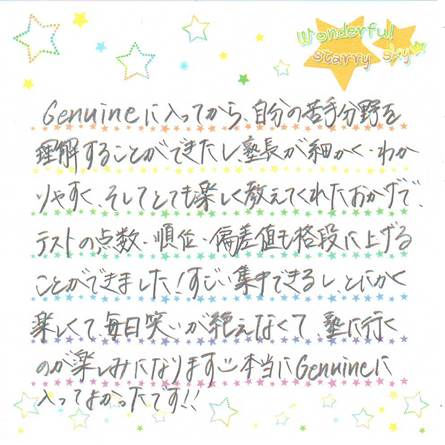 Wonderful
starry sky
Genuineに入ってから、自分の苦手分野を
理解することができたし、塾長が細かく、わか
りやすく、そしてとても楽しく教えてくれたおかげで、
テストの点数・順位・偏差値も格段に上げる
ことができました！すごい集中できるし、とにかく
楽しくて、毎日笑いが絶えなくて、塾に行く
のが楽しみになります 本当にGenuineに
入ってよかったです!!